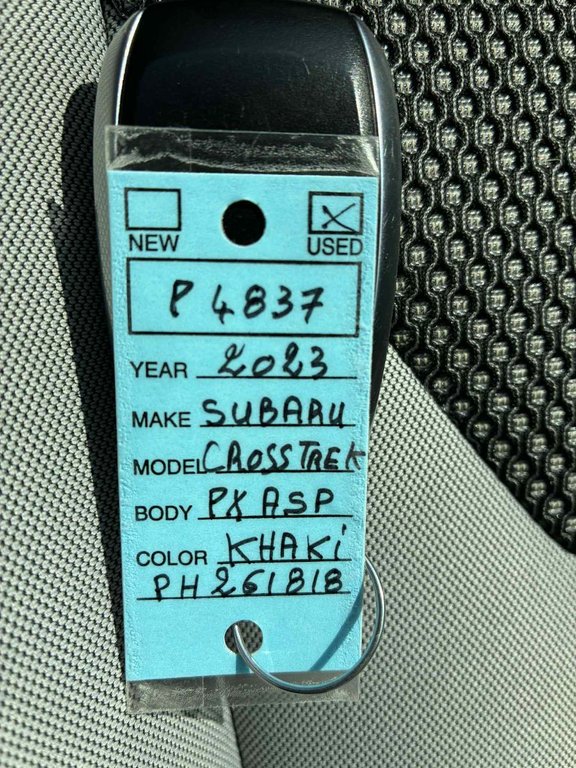 NEW USED
P4837
YEAR 2023
MAKE SUBARU
MODEL CROSSTREK
BODY PXASP
COLOR KHAKi
PH261818